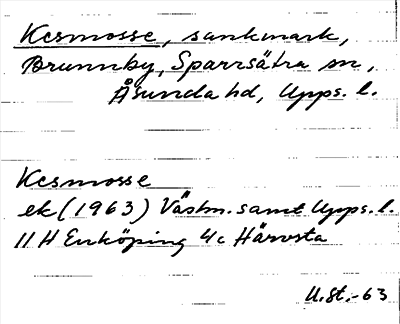 Kesmosse, sankmark,
Brunnby, Sparrsätra sn,
Åsunda hd, Upps. l.
Kesmosse
ek (1963) Västm. samt Upps. l.
11 H Enköping 4c Härvsta
U.St.-63